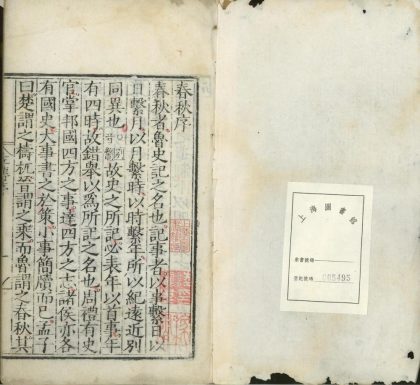 春秋序
春秋者魯史記之名也記事者以事繫日以
日繫月以月繫時以時繫年所以紀遠近別
同異也故史之所記必表年以首事年
有四時故錯舉以為所記之名也周禮有史
官掌邦國四方之事達四方之志諸侯亦各
有國史大事書之於策小事簡牘而已孟子
曰楚謂之檮杌晉謂之乘而魯謂之春秋其
上海圖書館